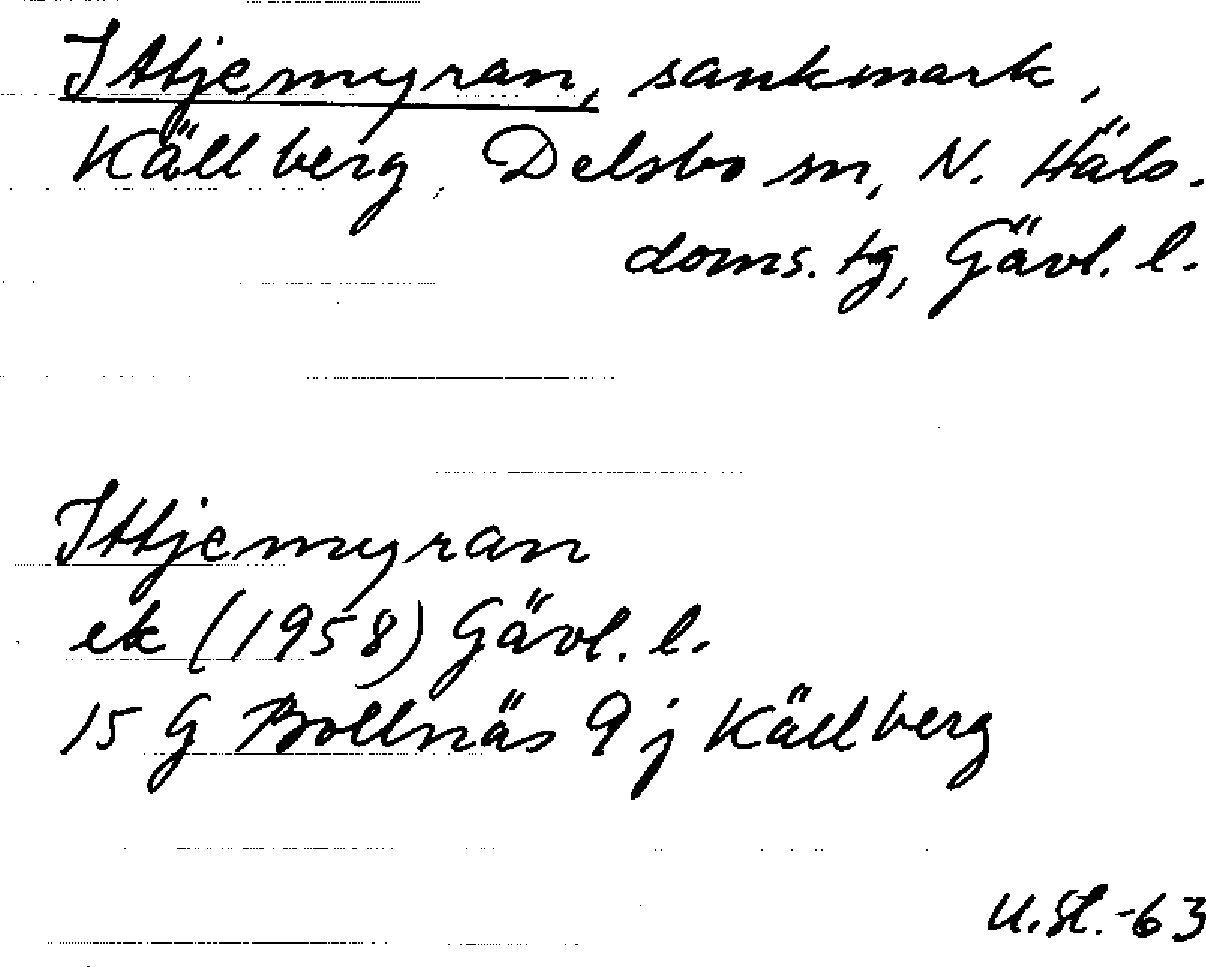 Ittjemyran, sankmark,
Källberg, Delsbo sn, N. Häls.
doms. tg, Gävl. l.
Ittjemyran
ek (1958) Gävl. l.
15 G Bollnäs 9 j Källberg
U. St. -63